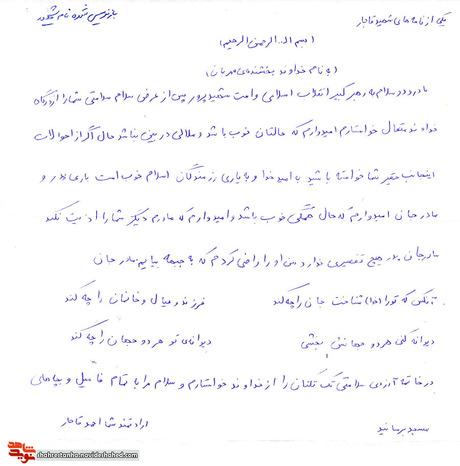 یکی از نامه های شهید قاجار
بازنویسی شده نامه شهید
(بسم الله الرحمن الرحیم)
(به نام خداوند بخشنده‌ی مهربان)
با درود و سلام به رهبر کبیر انقلاب اسلامی و امت شهید پرور پس از عرض سلام سلامتی شما را از درگاه
خداوند متعال خواستارم امیدوارم که حالتان خوب باشد و ملالی در بین نباشد حال اگر از احوالات
اینجانب حقیر شما خواسته باشید به امید خدا و به یاری رزمندگان اسلام خوب است باری پدر و
مادر جان امیدوارم که حال همگی خوب باشد و امیدوارم که مادرم دیگر شما را اذیت نکند
مادر جان پدر هیچ تقصیری ندارد من او را راضی کردم که به جبهه بیایم مادر جان
آنکس که تو را (خدا) شناخت جان را چه کند
فرزند و عیال و خانمان را چه کند
دیوانه کنی هر دو جهانش بخشی
دیوانه‌ی تو هر دو جهان را چه کند
در خاتمه آرزوی سلامتی تک تکتان را از خداوند خواستارم و سلام مرا به تمام فامیل و بچه‌های
مسجد برسانید
ارادتمند شما احمد قاجار
نوید شاهد
shahrestanha.navideshahed.com